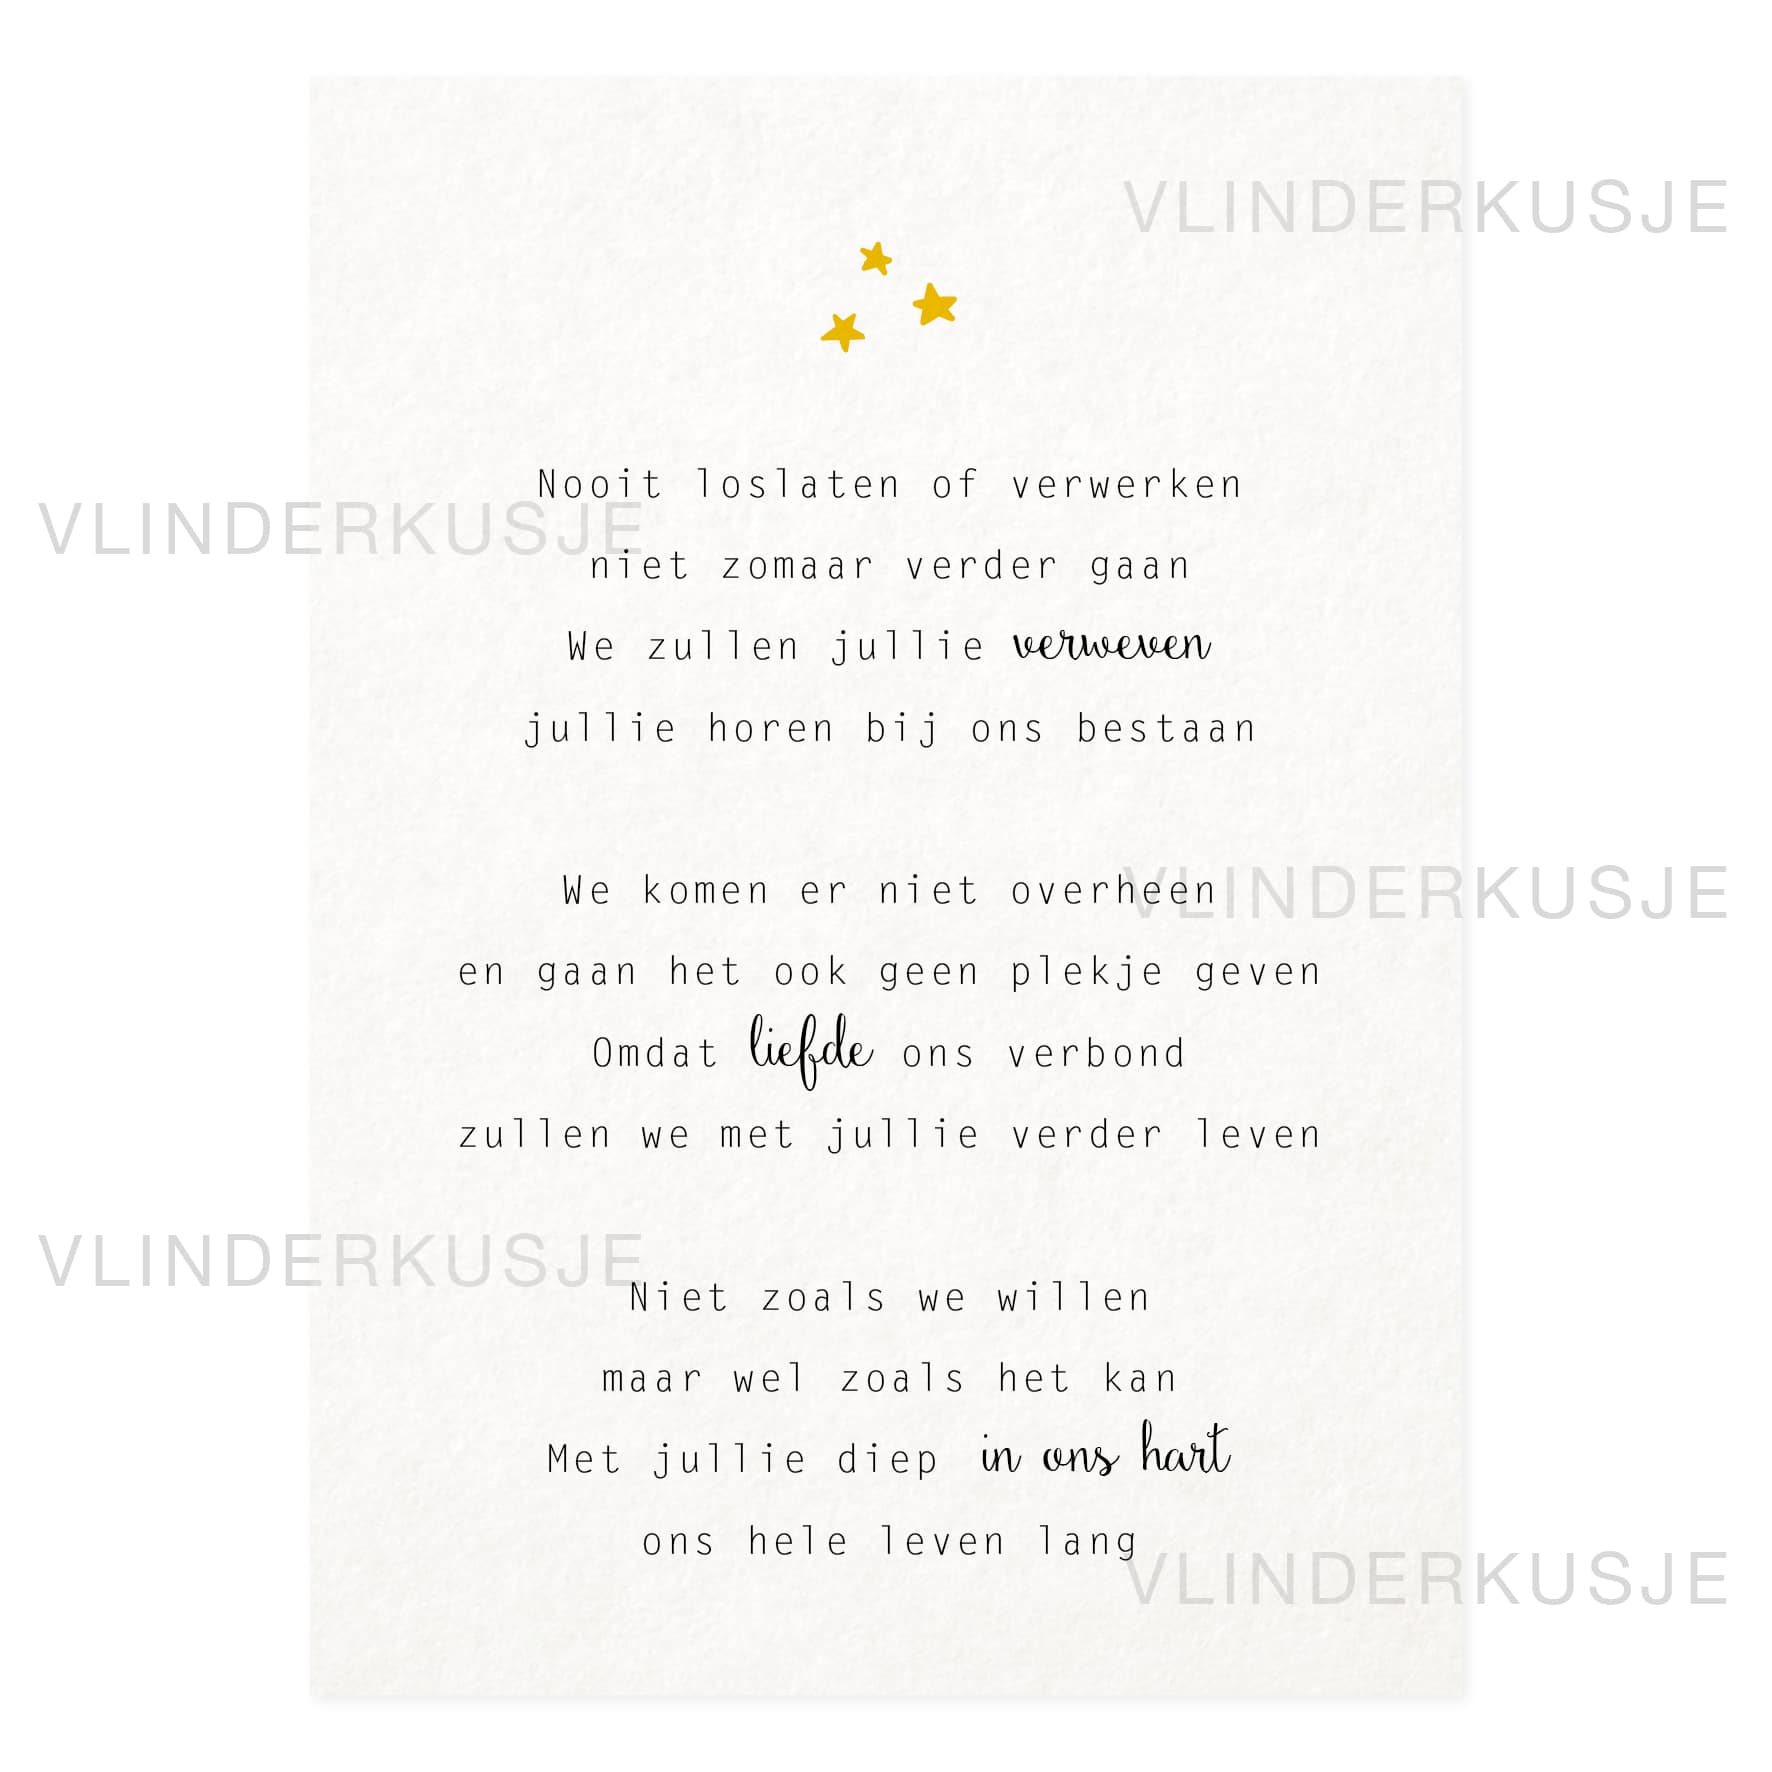 VLINDERKUSJE
Nooit loslaten of verwerken
VLINDERKUSJE
niet zomaar verder gaan
We zullen jullie verweven
jullie horen bij ons bestaan
We komen er niet overheen
VLINDERKUSJE
en gaan het ook geen plekje geven
Omdat liefde ons verbond
zullen we met jullie verder leven
VLINDERKUSJE
Niet zoals we willen
maar wel zoals het kan
Met jullie diep in ons hart
ons hele leven lang
VLINDERKUSJE